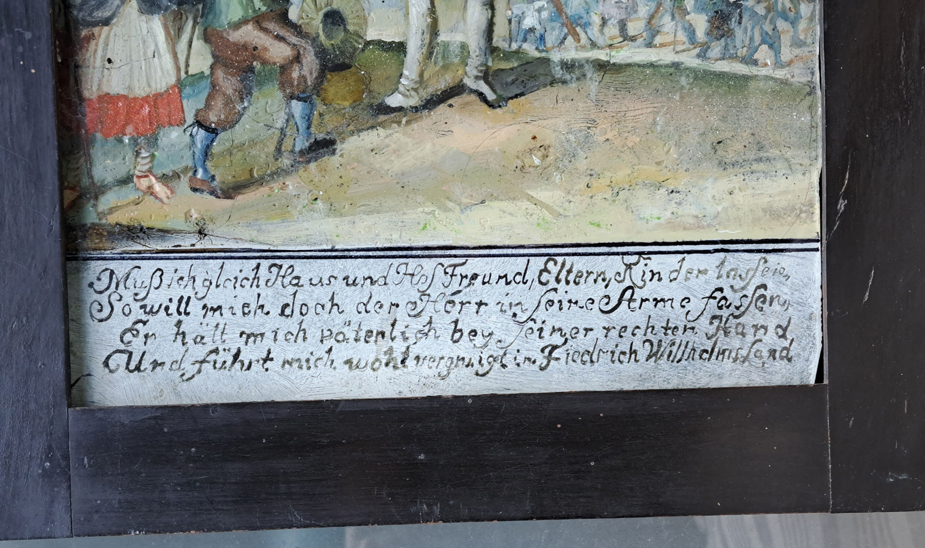 Muß ich gleich Haus und Hof Freund, Eltern, Kinder lassen,
So will mich doch der Herr in seine Arme fassen,
Er hält mich vätterlich bey seiner rechten Hand
Und führt mich wohl vergnügt in Fiedrich Willhelms Land